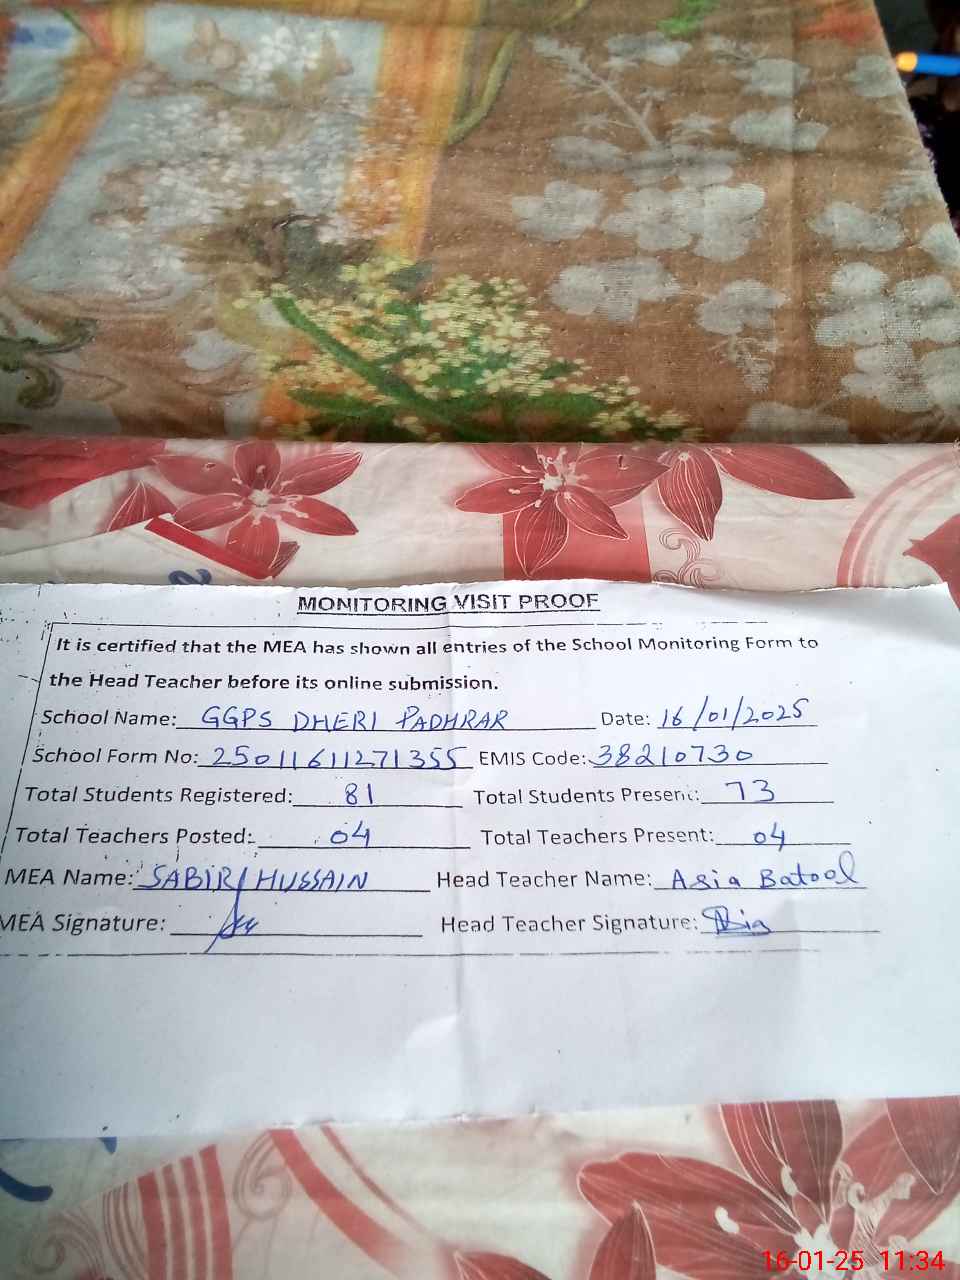 MONITORING VISIT PROOF
It is certified that the MEA has shown all entries of the School Monitoring Form to
the Head Teacher before its online submission.
School Name: GGPS DHERI PADHRAR Date: 16/01/2025
School Form No: 25011611271355 EMIS Code: 38210730
Total Students Registered: 81 Total Students Present: 73
Total Teachers Posted: 04 Total Teachers Present: 04
MEA Name: SABIR HUSSAIN Head Teacher Name: Asia Batool
MEA Signature: Head Teacher Signature:
16-01-25 11:34